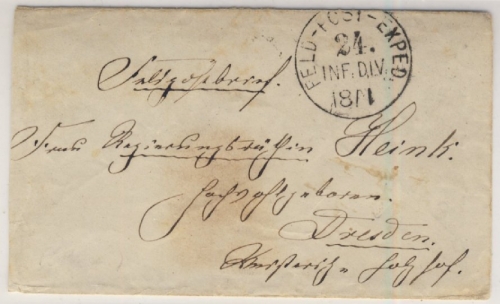 FELD-POST-EXPED
24.
INF. DIV.
18/1
Feldpostbrief.
Frau Regierungsräthin Heink.
Hochwohlgeboren.
Dresden.
holzhof.